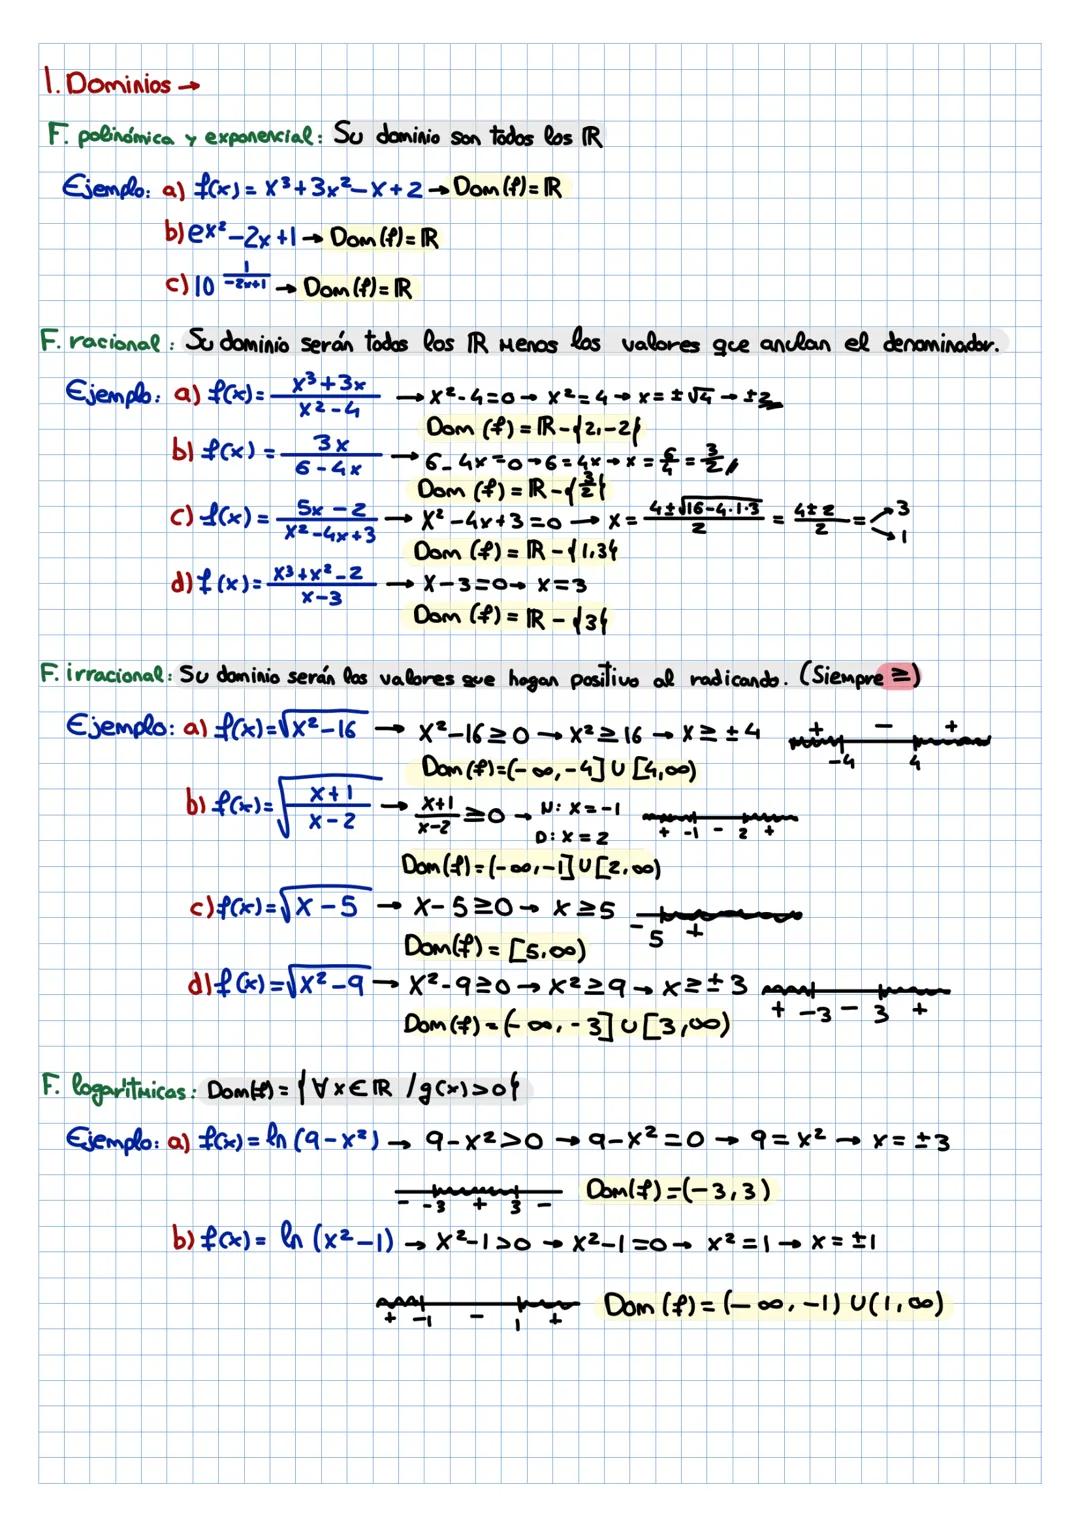 1. Dominios →
F. polinómica y exponencial: Su dominio son todos los ℝ
Ejemplo: a) f(x) = x³+3x²-x+2 → Dom(f)=ℝ
b) ex²-2x+1 → Dom(f)=ℝ
c) 10^(1/(-2x+1)) → Dom(f)=ℝ
F. racional: Su dominio serán todos los ℝ menos los valores que anulan el denominador.
Ejemplo: a) f(x)= (x³+3x)/(x²-4) → x²-4=0 → x²=4 → x=±√4 → ±2
Dom (f) = ℝ-{2,-2}
b) f(x) = 3x/(6-4x) → 6-4x=0 → 6=4x → x = 6/4 = 3/2 //
Dom (f) = ℝ-{3/2}
c) f(x) = (5x-2)/(x²-4x+3) → x²-4x+3=0 → x= (4±√(16-4·1·3))/2 = (4±2)/2 = 3 1
Dom (f) = ℝ-{1,3}
d) f(x)= (x³+x²-2)/(x-3) → x-3=0 → x=3
Dom (f) = ℝ-{3}
F. irracional: Su dominio serán los valores que hagan positivo al radicando. (Siempre ≥)
Ejemplo: a) f(x)=√(x²-16) → x²-16≥0 → x²≥16 → x≥±4 + - + -4 4
Dom(f)=(-∞,-4]∪[4,∞)
b) f(x)=√((x+1)/(x-2)) → (x+1)/(x-2) ≥0 → N: x=-1 D: x=2 + -1 - 2 +
Dom(f)=(-∞,-1]∪[2,∞)
c) f(x)=√(x-5) → x-5≥0 → x≥5 - 5 +
Dom(f)= [5,∞)
d) f(x)=√(x²-9) → x²-9≥0 → x²≥9 → x≥±3 + -3 - 3 +
Dom(f)=(-∞,-3]∪[3,∞)
F. logarítmicas: Dom(f)={∀x∈ℝ /g(x)>0}
Ejemplo: a) f(x)=ln(9-x²) → 9-x²>0 → 9-x²=0 → 9=x² → x=±3
- -3 + 3 - Dom(f)=(-3,3)
b) f(x)= ln (x²-1) → x²-1>0 → x²-1=0 → x²=1 → x=±1
+ -1 - 1 + Dom (f)=(-∞,-1)∪(1,∞)